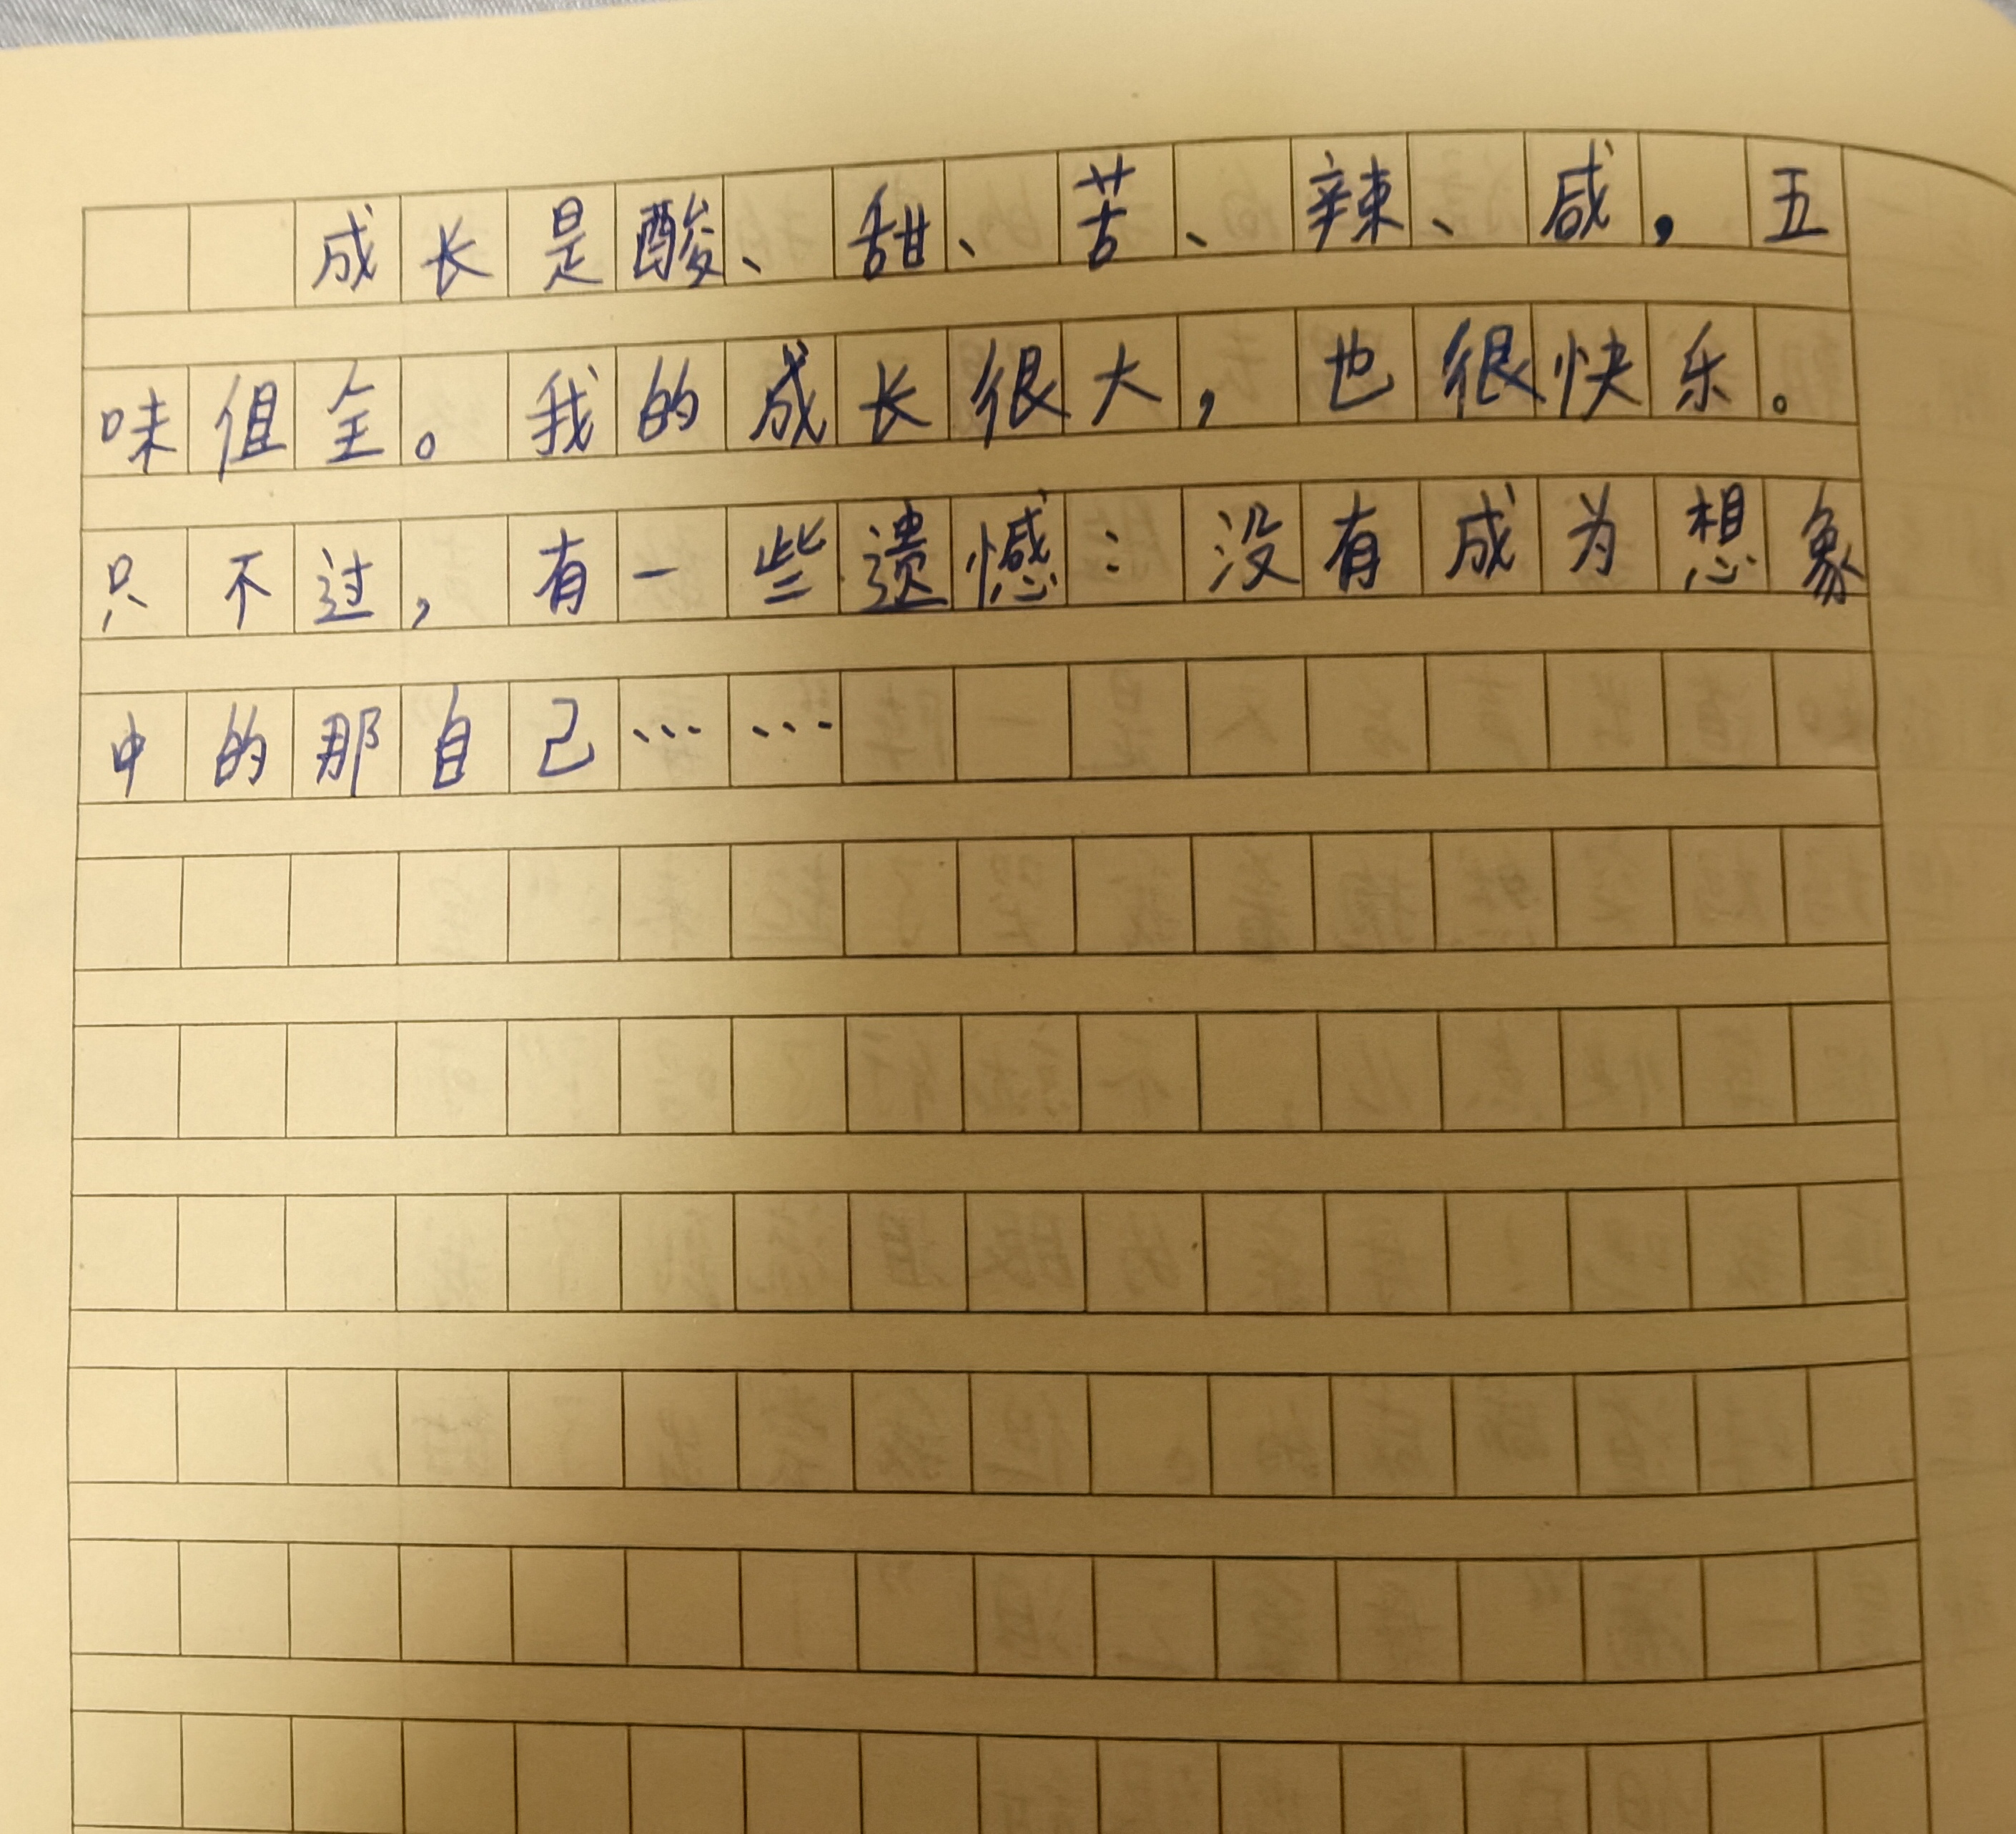 成长是酸、甜、苦、辣、咸，五
味俱全。我的成长很大，也很快乐。
只不过，有一些遗憾：没有成为想象
中的那自己……